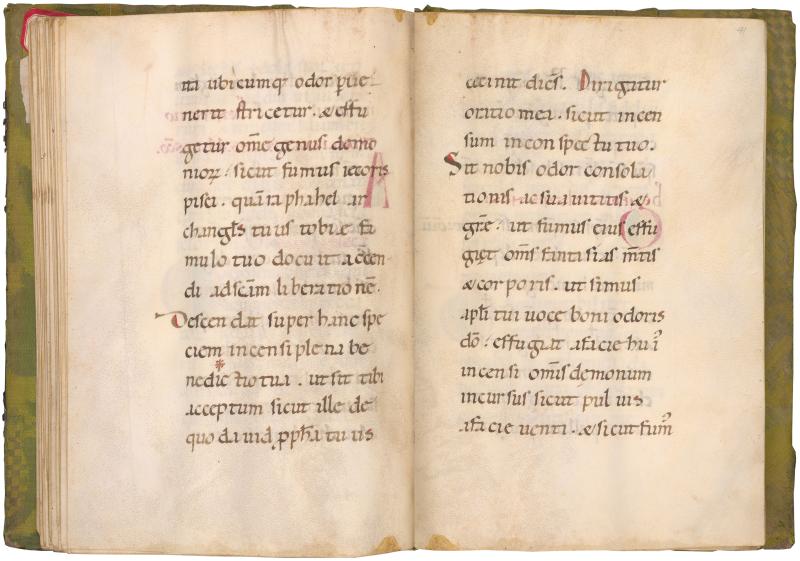 ni ubicumq; odor puene
nerit stricetur. & effu
getur om̄e genus demo
nioꝝ: sicut fumus iecoris
pisci. quā raphahel ar
changls̄ tuus tobiæ fa
mulo tuo docuit accen
di ad scām liberationē.
Descendat super hanc spe
ciem incensi plena be
nedictio tua. ut sit tibi
acceptum sicut ille de
quo dauid ꝓph̄a tuus
91
cecinit dicēs. Dirigatur
oratio mea. sicut incen
sum in conspectu tuo.
Sit nobis odor consola
tionis ac suauitatis &
grē. ut fumus eius effu
get om̄s fantasias m̄tis
& corporis. ut simus
apl̄i tui uoce boni odoris
dō: effugiat a facie huī
incensi omīs demonum
incursus sicut puluis
a facie uenti. & sicut fum᷒